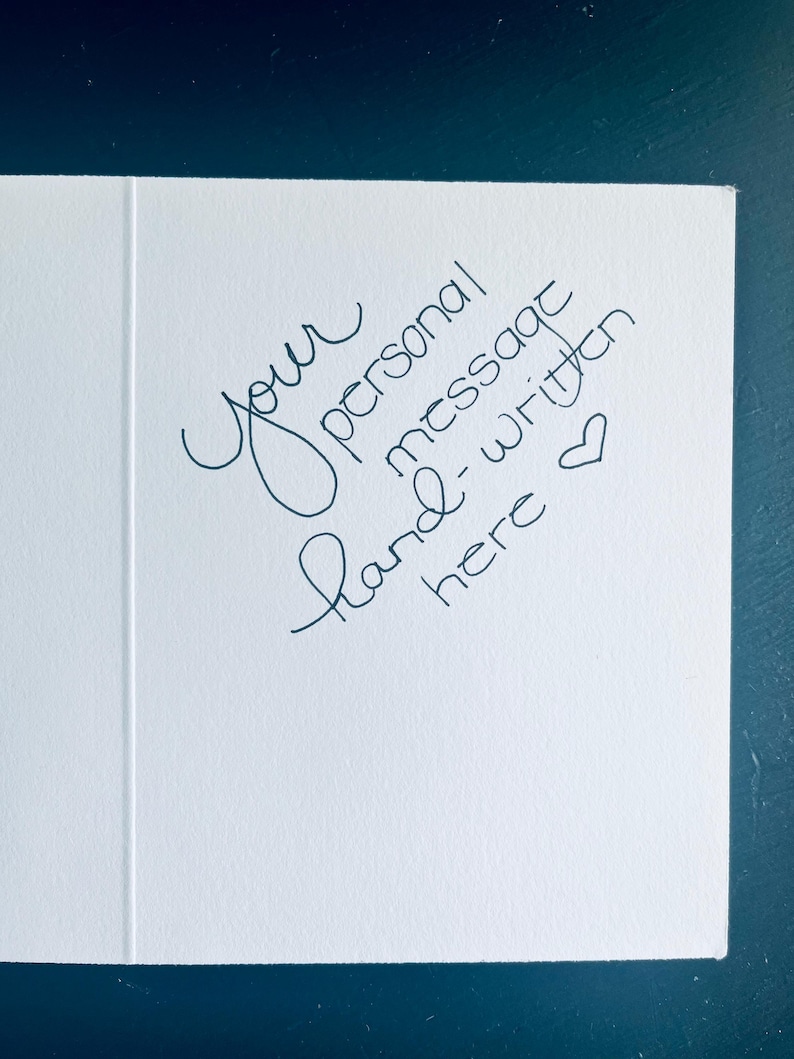 Your
personal
message
hand-written
here ♡